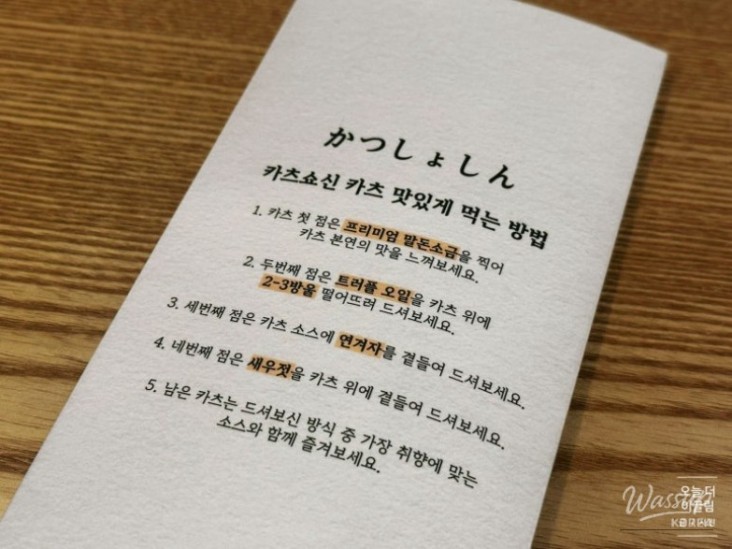 かつしょしん
카츠쇼신 카츠 맛있게 먹는 방법
1. 카츠 첫 점은 프리미엄 말돈소금을 찍어
카츠 본연의 맛을 느껴보세요.
2. 두번째 점은 트러플 오일을 카츠 위에
2-3방울 떨어뜨려 드셔보세요.
3. 세번째 점은 카츠 소스에 연겨자를 곁들여 드셔보세요.
4. 네번째 점은 새우젓을 카츠 위에 곁들여 드셔보세요.
5. 남은 카츠는 드셔보신 방식 중 가장 취향에 맞는
소스와 함께 즐겨보세요.
오늘 더